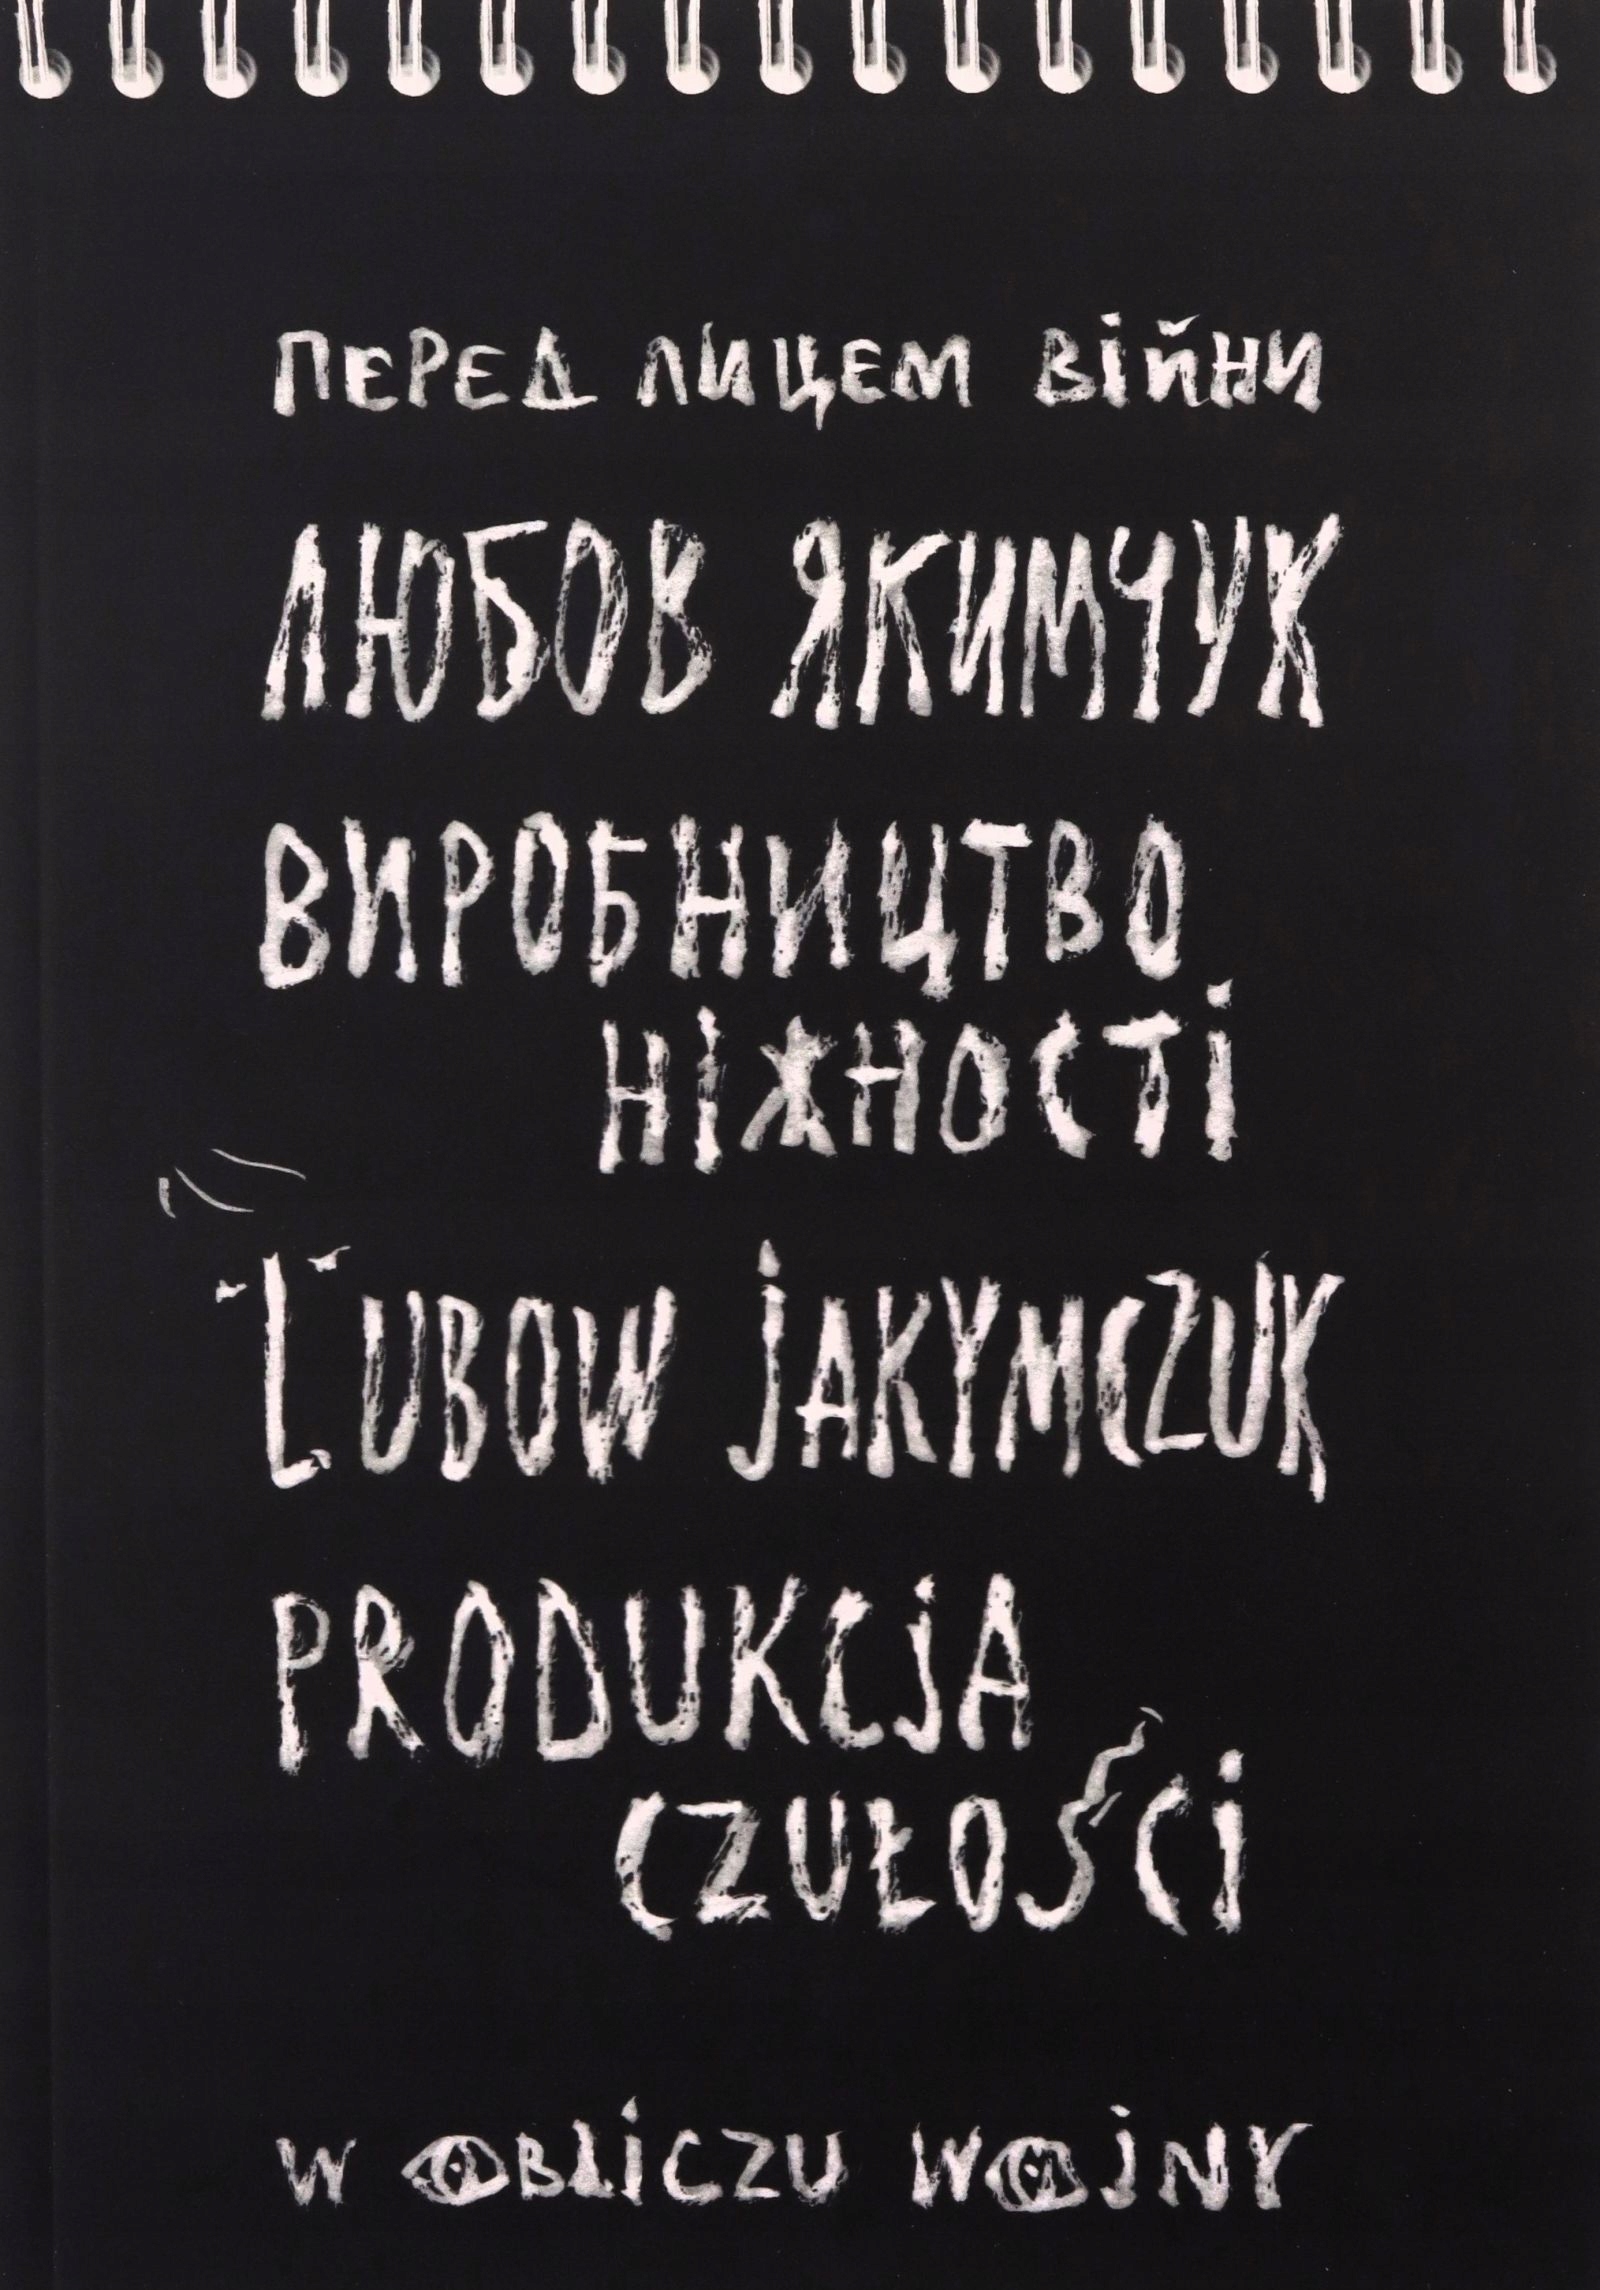 ПЕРЕД ЛИЦЕМ ВІЙНИ
ЛЮБОВ ЯКИМЧУК
ВИРОБНИЦТВО
НІЖНОСТІ
LUBOW JAKYMCZUK
PRODUKCJA
CZUŁOŚCI
W OBLICZU WOJNY